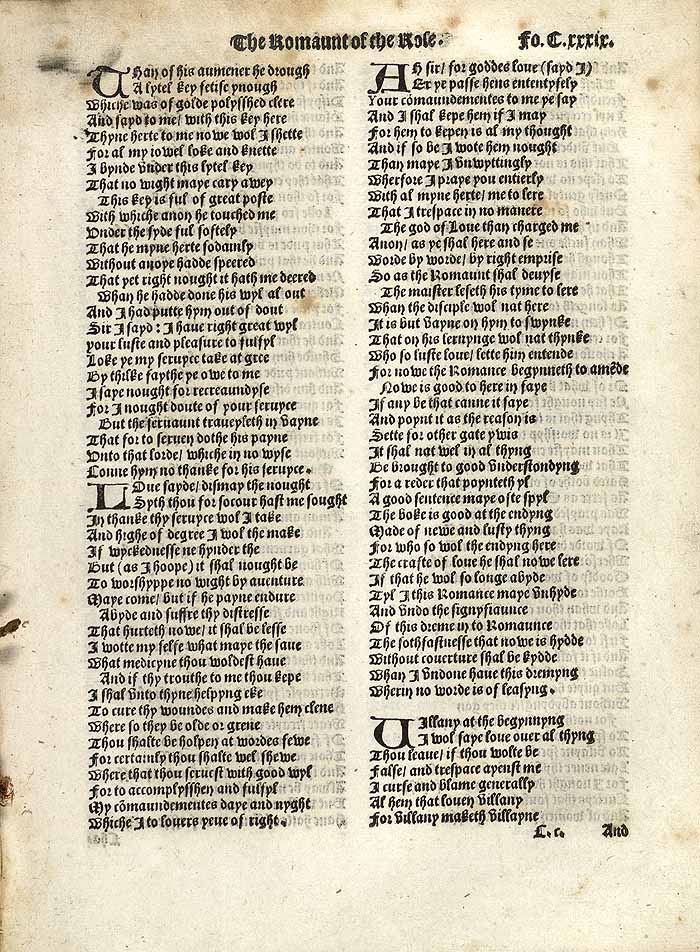 The Romaunt of the Rose.
Fo. C.xxxix.
THan of his aumener he drough
A lytel key fetise ynough
Whiche was of golde polysshed clere
And sayd to me/ with this key here
Thyne herte to me nowe wol I shette
For al my iowel loke and knette
I bynde vnder this lytel key
That no wight maye cary awey
This key is ful of great poste
With whiche anon he touched me
Vnder the syde ful softely
That he myne herte sodainly
Without anoye hadde speered
That yet right nought it hath me deered
Whan he hadde done his wyl al out
And I had putte hym out of dout
Sir I sayd: I haue right great wyl
your luste and pleasure to fulfyl
Loke ye my seruyce take at gree
By thilke faythe ye owe to me
I saye nought for recreaundyse
For I nought doute of your seruyce
But the seruaunt traueyleth in vayne
That for to seruen dothe his payne
Vnto that lorde/ whiche in no wyse
Conne hym no thanke for his seruyce.
LOue sayde/ dismay the nought
Syth thou for socour hast me sought
In thanke thy seruyce wol I take
And highe of degree I wol the make
If wyckednesse ne hynder the
But (as I hoope) it shal nought be
To worshyppe no wight by auenture
Maye come/ but if he payne endure
Abyde and suffre thy distresse
That hurteth nowe/ it shal be lesse
I wotte my selfe what maye the saue
What medicyne thou woldest haue
And if thy trouthe to me thou kepe
I shal vnto thyne helpyng eke
To cure thy woundes and make hem clene
Where so they be olde or grene
Thou shalte be holpen at wordes fewe
For certainly thou shalte wel shewe
Where that thou seruest with good wyl
For to accomplysshen and fulfyl
My cōmaundementes daye and nyght
Whiche I to louers yeue of right.
AH sir/ for goddes loue (sayd I)
Er ye passe hens ententyfely
Your cōmaundementes to me ye say
And I shal kepe hem if I may
For hem to kepen is al my thought
And if so be I wote hem nought
Than maye I vnwyttingly
Wherfore I praye you entierly
With al myne herte/ me to lere
That I trespace in no manere
The god of Loue than charged me
Anon/ as ye shal here and se
Worde by worde/ by right emprise
So as the Romaunt shal deuyse
The maister leseth his tyme to lere
Whan the disciple wol nat here
It is but vayne on hym to swynke
That on his lernynge wol nat thynke
Who so luste loue/ lette him entende
For nowe the Romance begynneth to amēde
Nowe is good to here in faye
If any be that canne it saye
And poynt it as the reason is
Sette for other gate ywis
It shal nat wel in al thyng
Be brought to good vnderstondyng
For a reder that poynteth yl
A good sentence maye ofte spyl
The boke is good at the endyng
Made of newe and lusty thyng
For who so wol the endyng here
The crafte of loue he shal nowe lere
If that he wol so longe abyde
Tyl I this Romance maye vnhyde
And vndo the signyfiaunce
Of this dreme in to Romaunce
The sothfastnesse that nowe is hydde
Without couerture shal be kydde
Whan I vndone haue this dremyng
Wherin no worde is of leasyng.
VIllany at the begynnyng
I wol saye loue ouer al thyng
Thou leaue/ if thou wolte be
False/ and trespace ayenst me
I curse and blame generally
Al hem that louen villany
For villany maketh villayne
C.c.
And